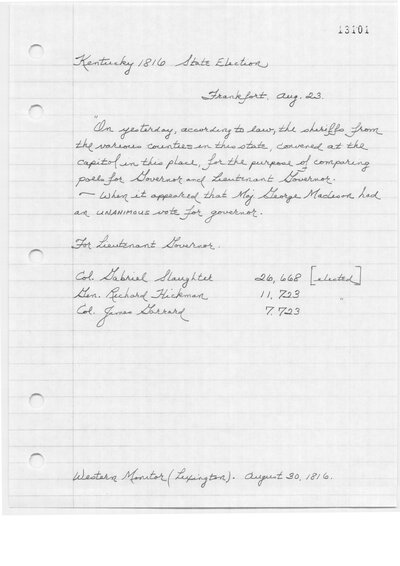 13101
Kentucky 1816 State Election
Frankfort, Aug. 23.
"On yesterday, according to law, the sheriffs from
the various counties in this state, convened at the
capitol in this place, for the purpose of comparing
polls for Governor and Lieutenant Governor.
— When it appeared that Maj George Madison had
an UNANIMOUS vote for governor.
For Lieutenant Governor.
Col. Gabriel Slaughter 26,668 [elected]
Gen. Richard Hickman 11,723 "
Col. James Garrard 7.723
Western Monitor (Lexington). August 30, 1816.